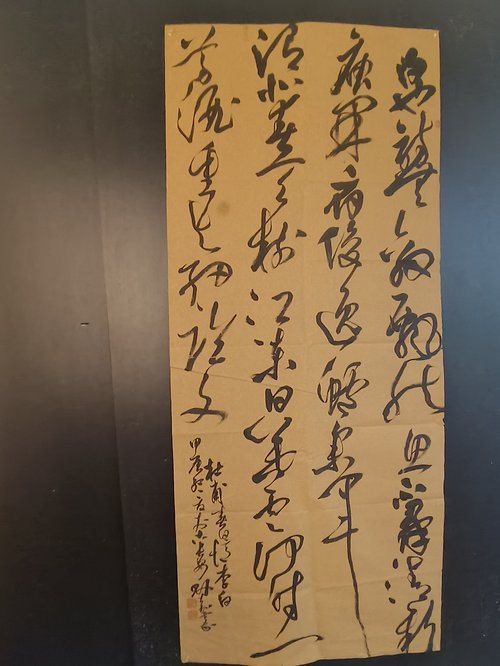 白也詩無敵飄然思不羣清新
庾開府俊逸鮑參軍
渭北春天樹江東日暮雲何時一
尊酒重與細論文
杜甫春日憶李白